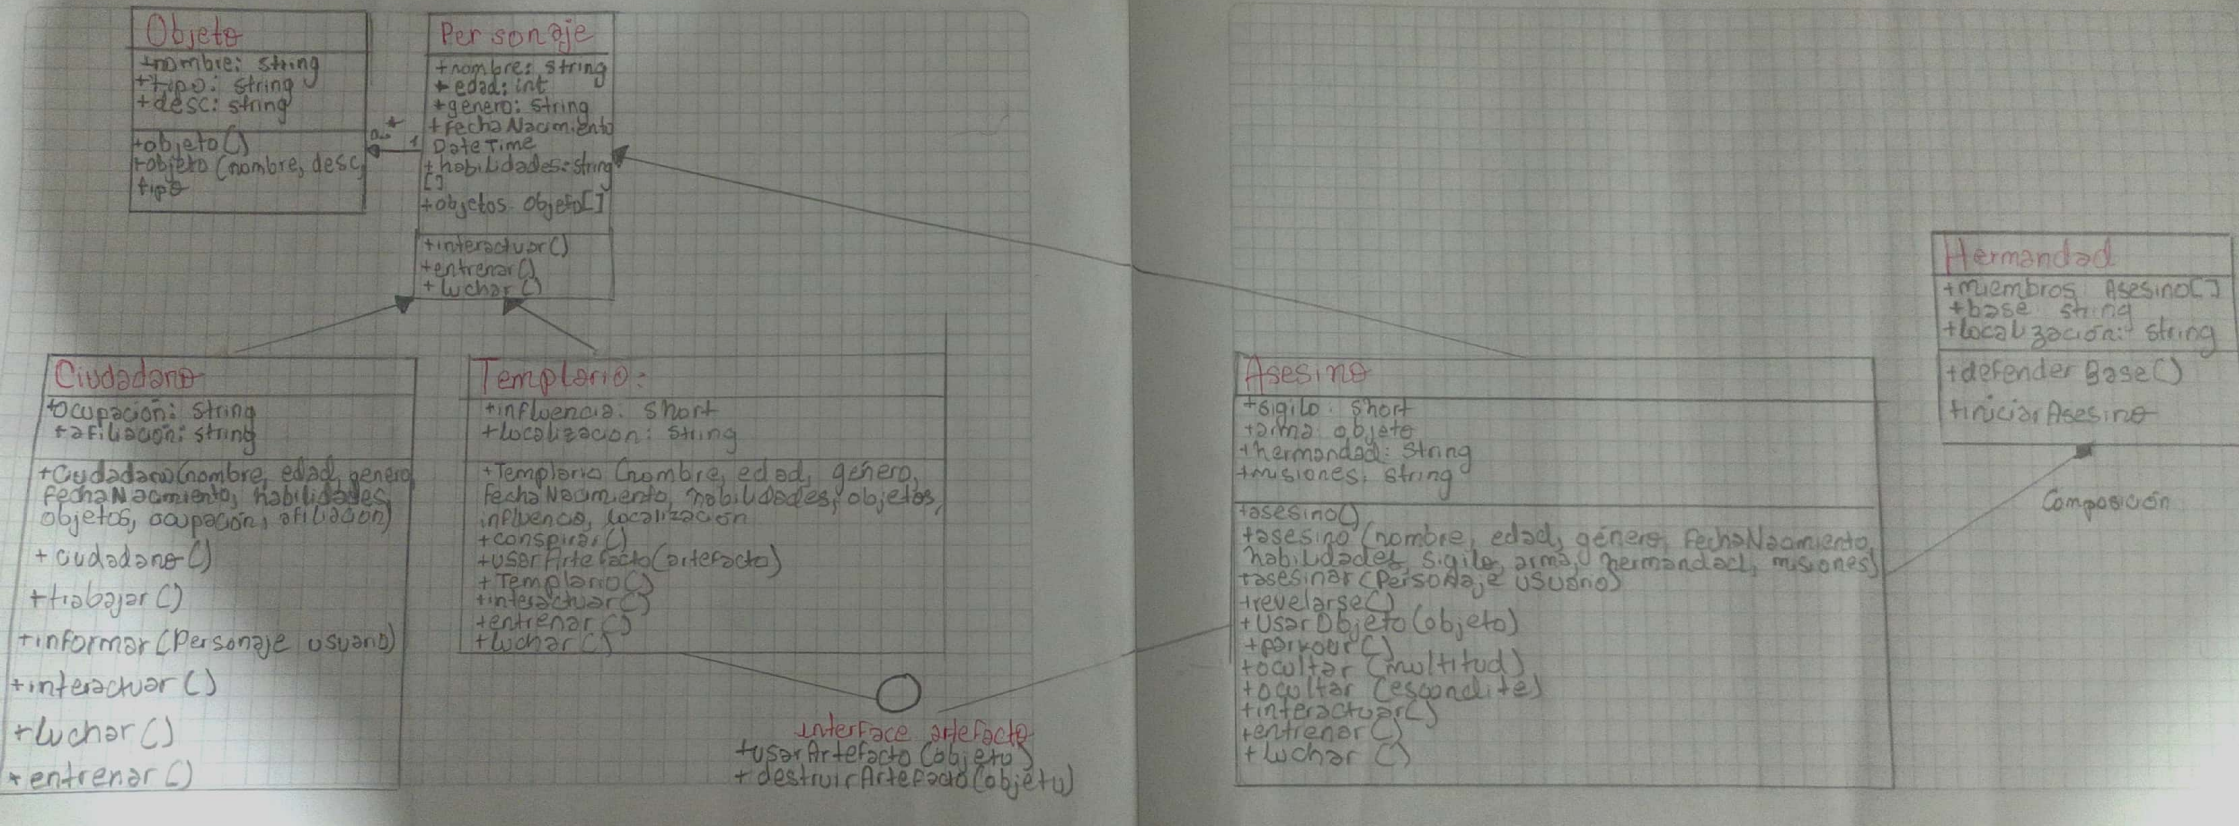 Objeto
+nombre: string
+tipo: string
+desc: string
+objeto()
+objeto(nombre, desc,
tipo
0..*
1
Personaje
+nombre: string
+edad: int
+genero: string
+fechaNacimiento
DateTime
+habilidades: string
[]
+objetos: Objeto[]
+interactuar()
+entrenar()
+luchar()
Ciudadano
+ocupación: string
+afiliación: string
+Ciudadano(nombre, edad, genero,
fechaNacimiento, habilidades,
objetos, ocupación, afiliación)
+ciudadano()
+trabajar()
+informar(Personaje usuario)
+interactuar()
+luchar()
+entrenar()
Templario:
+influencia: short
+localización: string
+Templario (nombre, edad, género,
fechaNacimiento, habilidades, objetos,
influencia, localización
+conspirar()
+usarArtefacto(artefacto)
+Templario()
+interactuar()
+entrenar()
+luchar()
interface artefacto
+usarArtefacto(objeto)
+destruirArtefacto(objeto)
Asesino
+sigilo: short
+arma: objeto
+hermandad: string
+misiones: string
+asesino()
+asesino(nombre, edad, género, fechaNacimiento,
habilidades, sigilo, arma, hermandad, misiones)
+asesinar(Personaje usuario)
+revelarse()
+usarObjeto(objeto)
+parkour()
+ocultar(multitud)
+ocultar(escondite)
+interactuar()
+entrenar()
+luchar()
Hermandad
+miembros: Asesino[]
+base: string
+localización: string
+defenderBase()
+iniciarAsesino
Composición